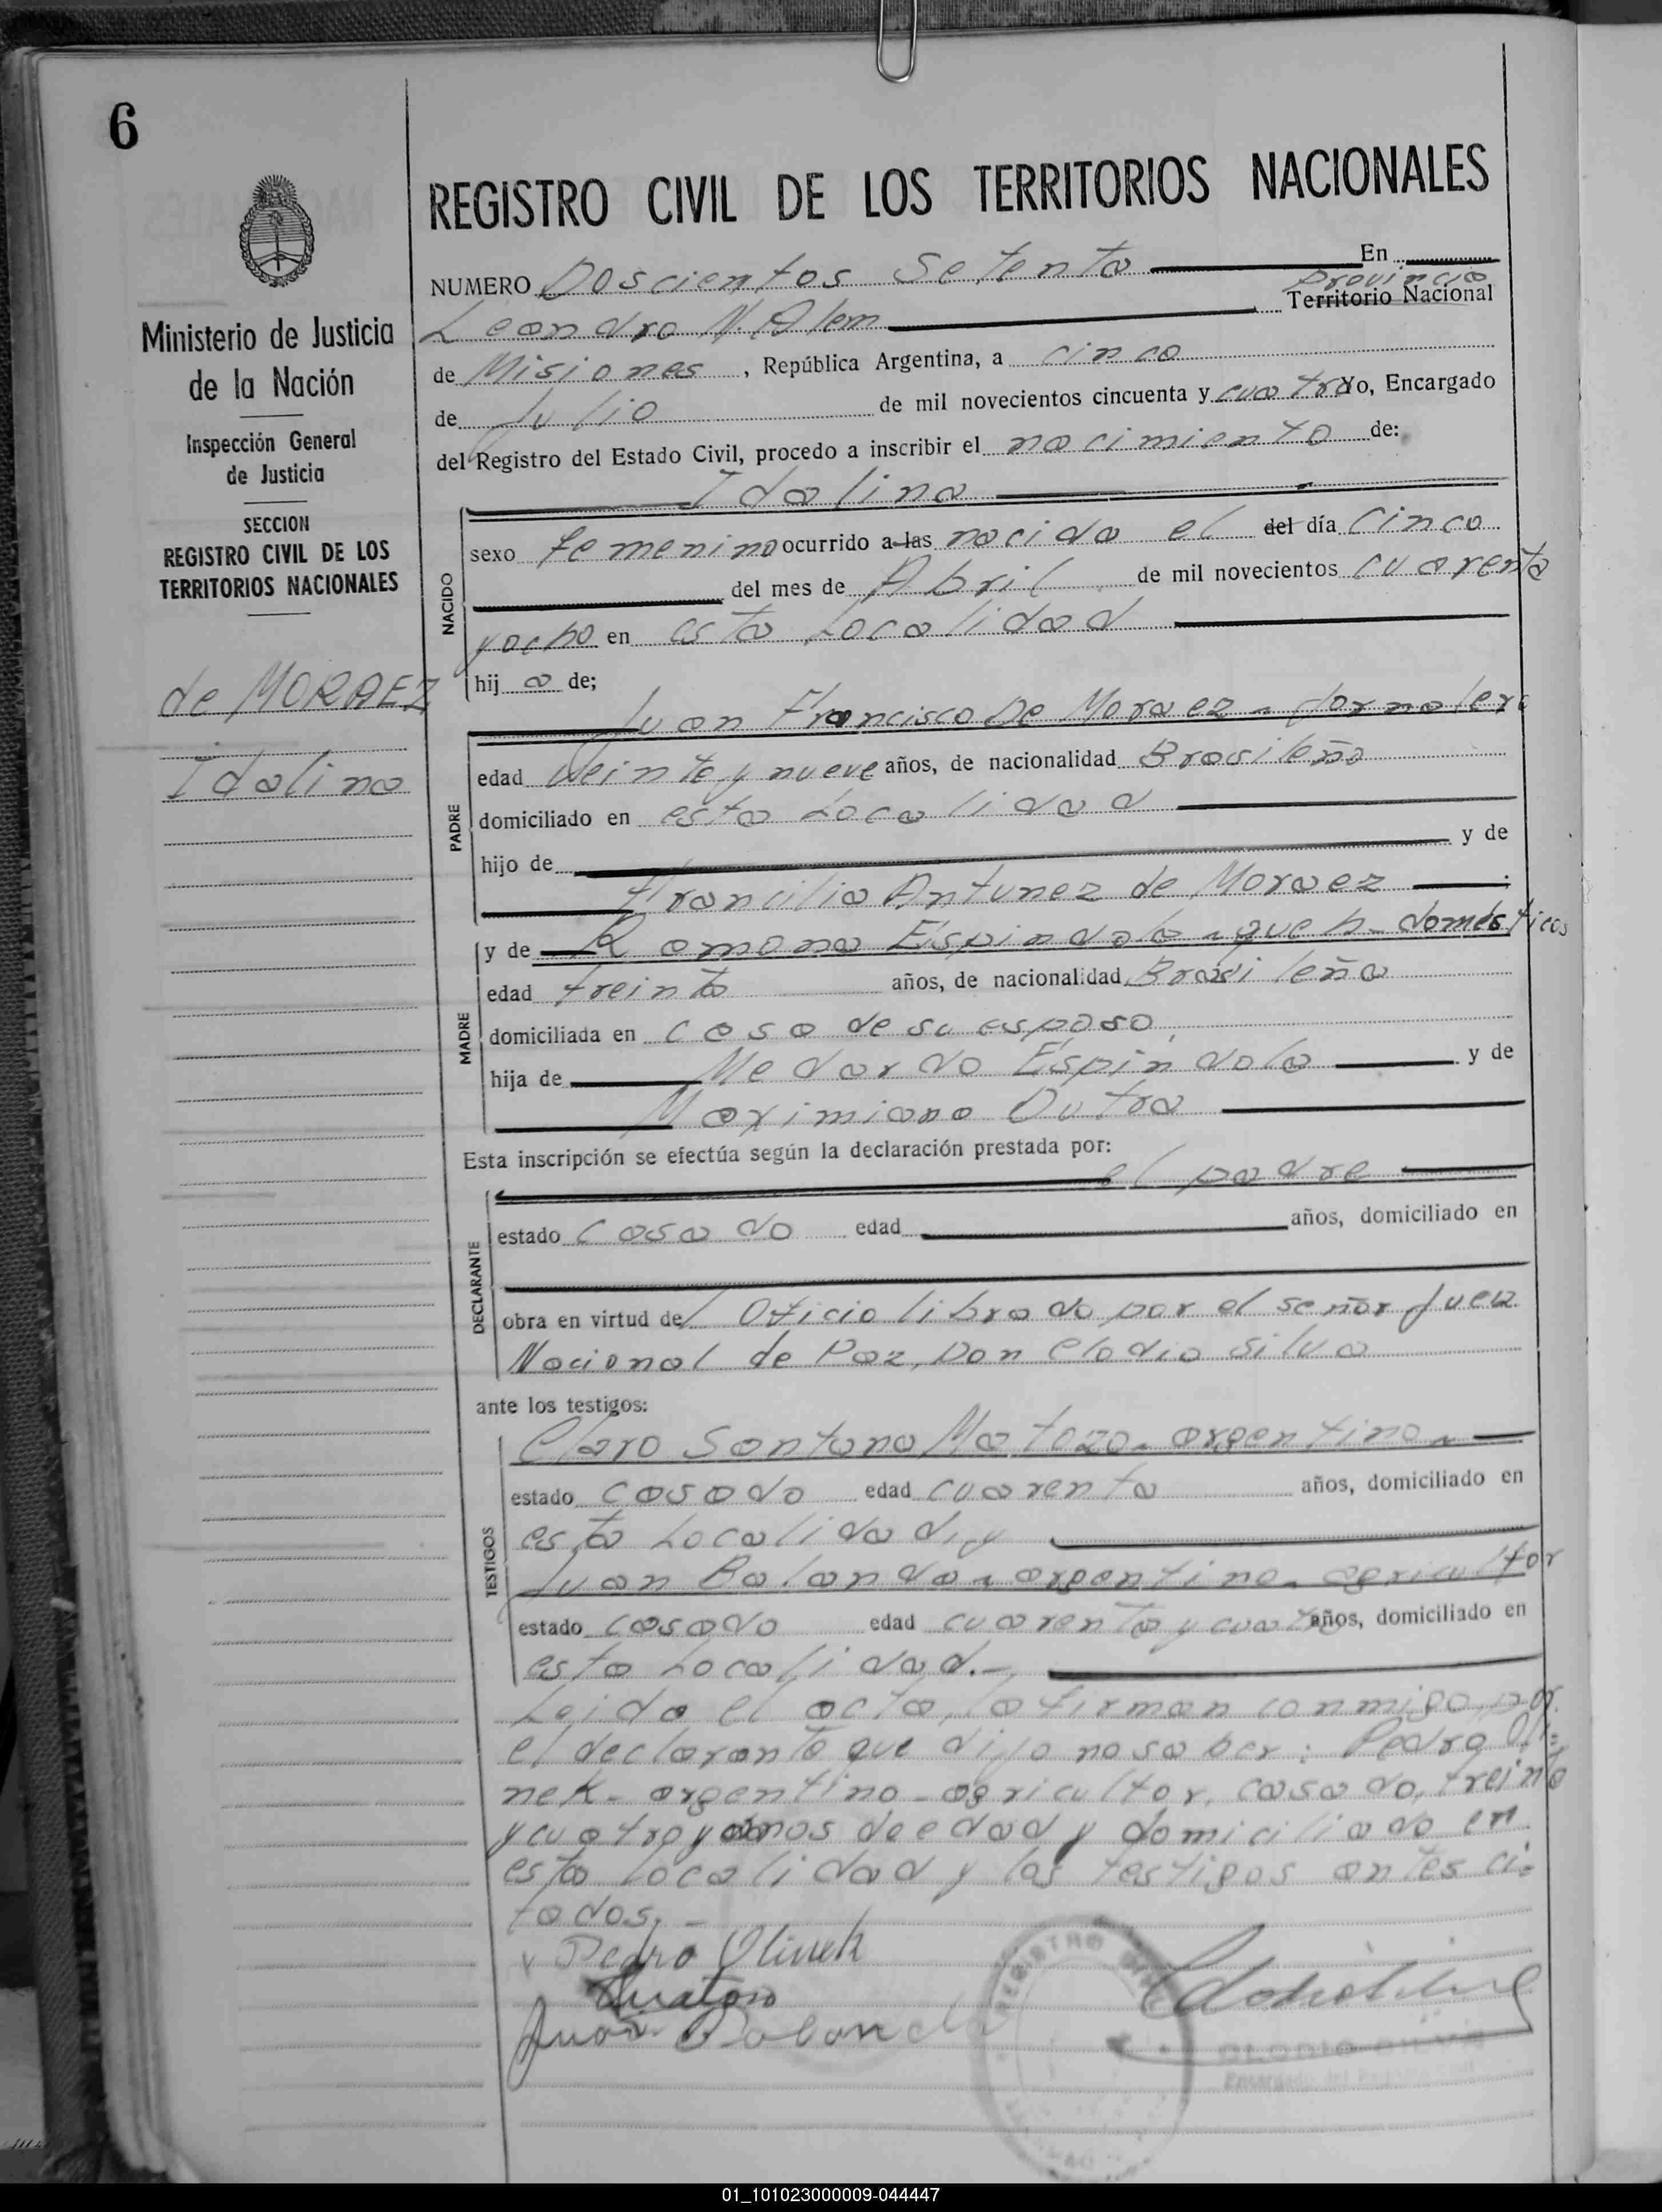 6
REGISTRO CIVIL DE LOS TERRITORIOS NACIONALES
NUMERO Doscientos Setenta En
Provincia
Leandro N. Alem Territorio Nacional
de Misiones, República Argentina, a cinco
de Julio de mil novecientos cincuenta y cuatro Yo, Encargado
del Registro del Estado Civil, procedo a inscribir el nacimiento de:
Idalina
NACIDO
sexo femenino ocurrido a las nacida el del día Cinco
del mes de Abril de mil novecientos cuarenta
y ocho en esta Localidad
hij a de;
Juan Francisco De Moraez - Jornalero
PADRE
edad Veinte y nueve años, de nacionalidad Brasileño
domiciliado en esta Localidad
hijo de y de
Francilia Antunez de Moraez
MADRE
y de Ramona Espindola - queh. domésticos
edad treinta años, de nacionalidad Brasileña
domiciliada en casa de su esposo
hija de Medardo Espindola y de
Maximiana Dutra
Esta inscripción se efectúa según la declaración prestada por:
el padre
DECLARANTE
estado Casado edad años, domiciliado en
obra en virtud del Oficio librado por el señor Juez
Nacional de Paz, Don Clodio Silva
ante los testigos:
TESTIGOS
Claro Santana Matozo - argentino -
estado Casado edad cuarenta años, domiciliado en
esta Localidad, y
Juan Balanda - argentino - agricultor
estado casado edad cuarenta y cuatro años, domiciliado en
esta Localidad.-
Leida el acta, la firman conmigo, por
el declarante que dijo no saber: Pedro Oli=
nek - argentino - agricultor, casado, treinta
y cuatro años de edad y domiciliado en
esta localidad y los testigos antes ci=
tados.-
Pedro Olinek
Matozo
Juan Balanda
REGISTRO CIVIL
CLODIO SILVA
Encargado del Registro Civil
Ministerio de Justicia
de la Nación
Inspección General
de Justicia
SECCION
REGISTRO CIVIL DE LOS
TERRITORIOS NACIONALES
de MORAEZ
Idalina
01_101023000009-044447